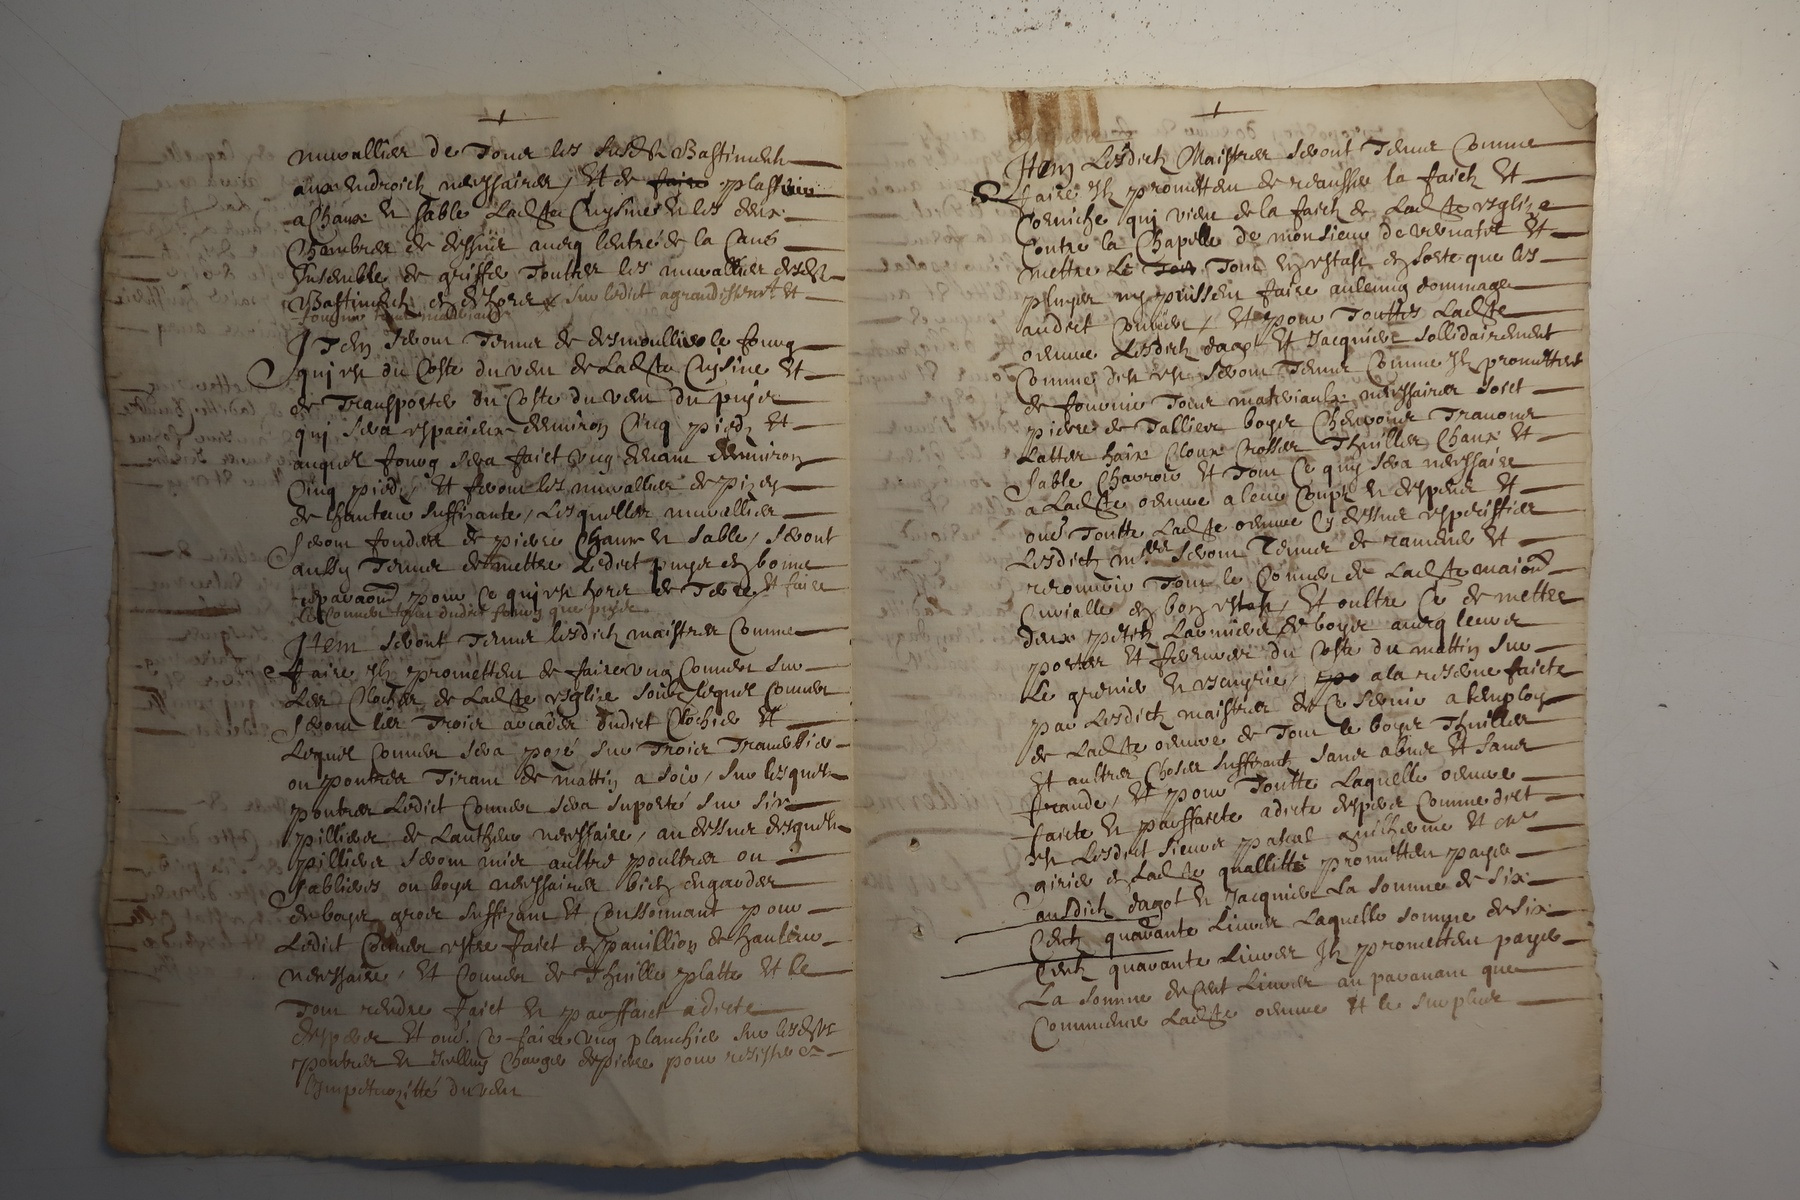 murallier de Tour les susd. Bastiment
aux endroictz necessaires, Et de faire plastrir
a Chaux et sable Ladte Cuysine et les deux
Chambres de dessus avecq lentré de la Cave
Ensemble de griffer Touttes les murallies desd.
Bastimentz en dehors sur ledict agrandissent et
fournir tous materiaux
Item seront Tenus de desmoullir le fourg
qui est du Costé du vent de Ladte Cuysine Et
de Transporter du Costé du vent du puyer
qui sera espacieux denviron Cinq piedz Et
auquel fourg sera faict ung devant denviron
Cinq piedz, Et feront les murallies de pizey
de hauteur suffizante, Lesquelles murallies
seront fondées de pierre Chaux et sable, seront
aussy Tenus de mettre Ledict puyer en bonne
reparaon pour ce qui est hors de Terre, et faire
les Couvertz tant dudict fourg que puyer
Item seront Tenus lesdictz maistres Comme
faire Ilz promettent de faire ung Couvert sur
Les Clocher de Ladte esglize soubz lequel Couvert
seront les Trois arcades dudict Clochier Et
Lequel Couvert sera posé sur Trois
ou poutres Tirant de mattin a soir, sur lesquelz
poutres Ledict Couvert sera suporté sur six
pilliers de Lautheur necessaire, au dessus desquelz
pilliers seront mis aultre poultres ou
sablieres ou boys necessaires bien
de boys gros suffizant Et Consonnant pour
Ledict Couvert estre faict en pavillion de hauteur
necessaire, Et Couvert de Thuille platte Et le
Tout rendre faict et parffaict a dicte
despers Et oultre Ce faire ung planchier sur lesdes
poutres et Icelluy Charger de pierre pour resister a
Limpetuozitté du vent
Item Lesdictz Maistres seront Tenus Comme
faire Ilz promettent de reausser la faictz Et
Corniche qui vient de la faict de Ladte esglize
Contre la Chapelle de monsieur de vernatz Et
mettre Le Tout en estat en sorte que les
pluyes ny puissent faire aulcung dommage
audict Couvert, Et pour Touttes Ladte
oeuvre Lesdictz dagot Et Jacquier sollidairement
Comme dict est seront Tenus Comme Ilz promettent
de fournir Tous materiaulx necessaires soict
pierre de Taillier boys Chevrons Travons
Latter haix Cloux Crosses Thuilles Chaux Et
sable Charroir Et Tout Ce quy sera necessaire
a Ladte oeuvre a leur Coupz et despens Et
oultre Toutte Ladte oeuvre Cy dessus espeziffiee
Lesdictz mres seront Tenus de ramener Et
recouvrir Tout le Couvert de Ladte maison
Curialle en bon estat, Et oultre Ce de mettre
deux petitz Larmiers de boys avecq leurs
portes Et ferrures du Costé du mattin sur
Le grenier et escuyrie, a la reserve faicte
par Lesdictz maistres de Ce servir a lemploy
de Ladte oeuvre de Tout le boys Thuilles
Et aultres Choses suffizantz sans abus Et sans
fraude, Et pour Toutte Laquelle oeuvre
faicte et parffaicte a dicte despers Comme dict
est Lesdict sieurs pascal guilherme Et
girier en Ladte quallitté promettent payer
ausdictz dagot et Jacquier La somme de six
Centz quarante Livres Laquelle somme de six
Centz quarante Livres Ilz promettent payer
La somme de Cent Livres au paravant que
Commencer Ladte oeuvre Et le surplus